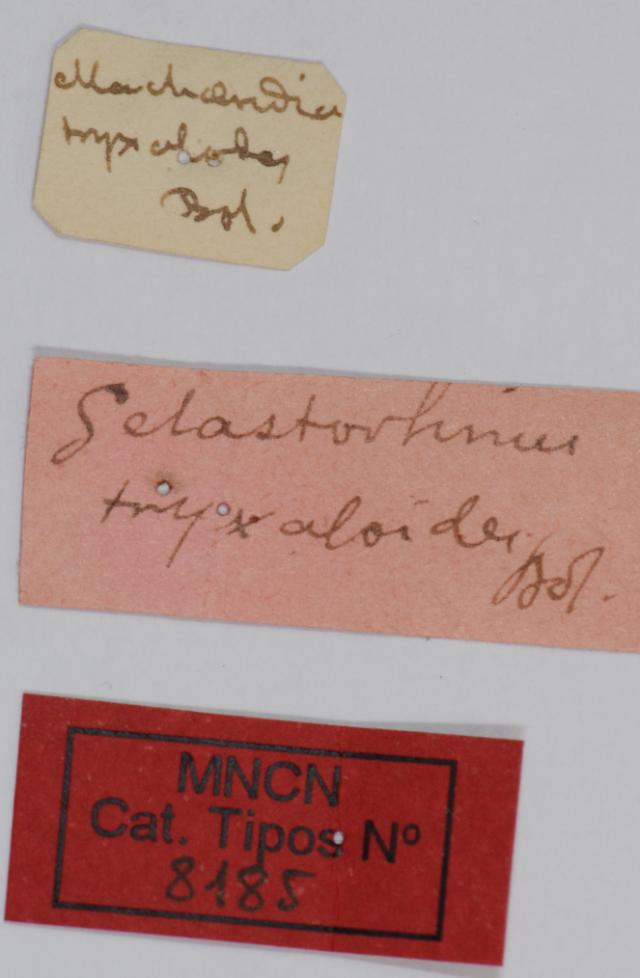 Machæridia
tryxaloides
Bol.
Gelastorhinus
tryxaloides
Bol.
MNCN
Cat. Tipos Nº
8185